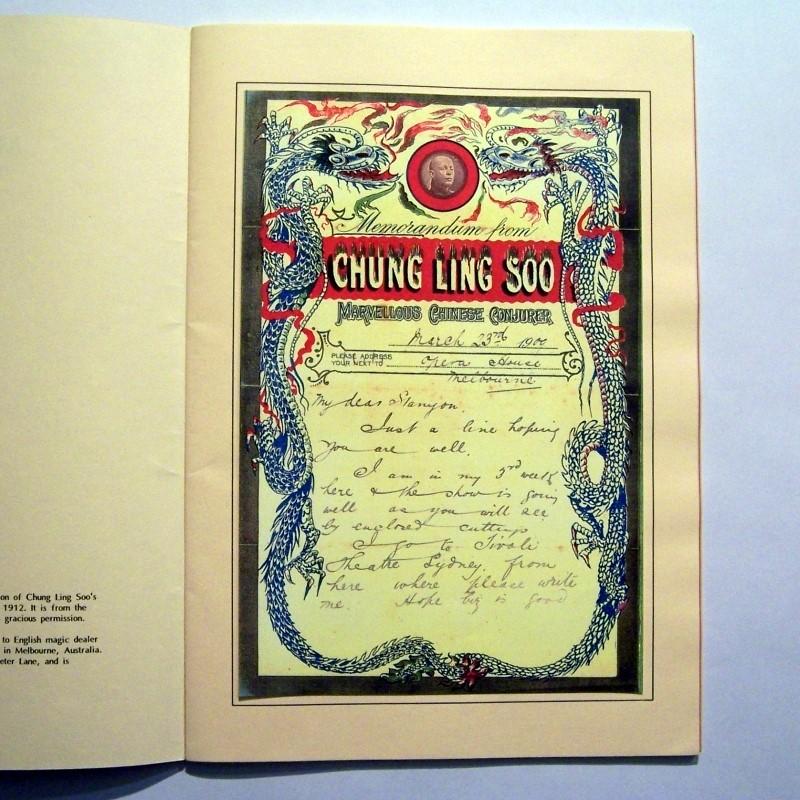 on of Chung Ling Soo's
1912. It is from the
gracious permission.
to English magic dealer
in Melbourne, Australia.
eter Lane, and is
Memorandum from
CHUNG LING SOO
MARVELLOUS CHINESE CONJURER
March 23rd 190
PLEASE ADDRESS
YOUR NEXT TO
Opera House
Melbourne
My dear Stanyon.
Just a line hoping
you are well.
I am in my 3rd week
here & the show is going
well as you will see
by enclosed cuttings
I go to Tivoli
Theatre Sydney. from
here where please write
me. Hope biz is good